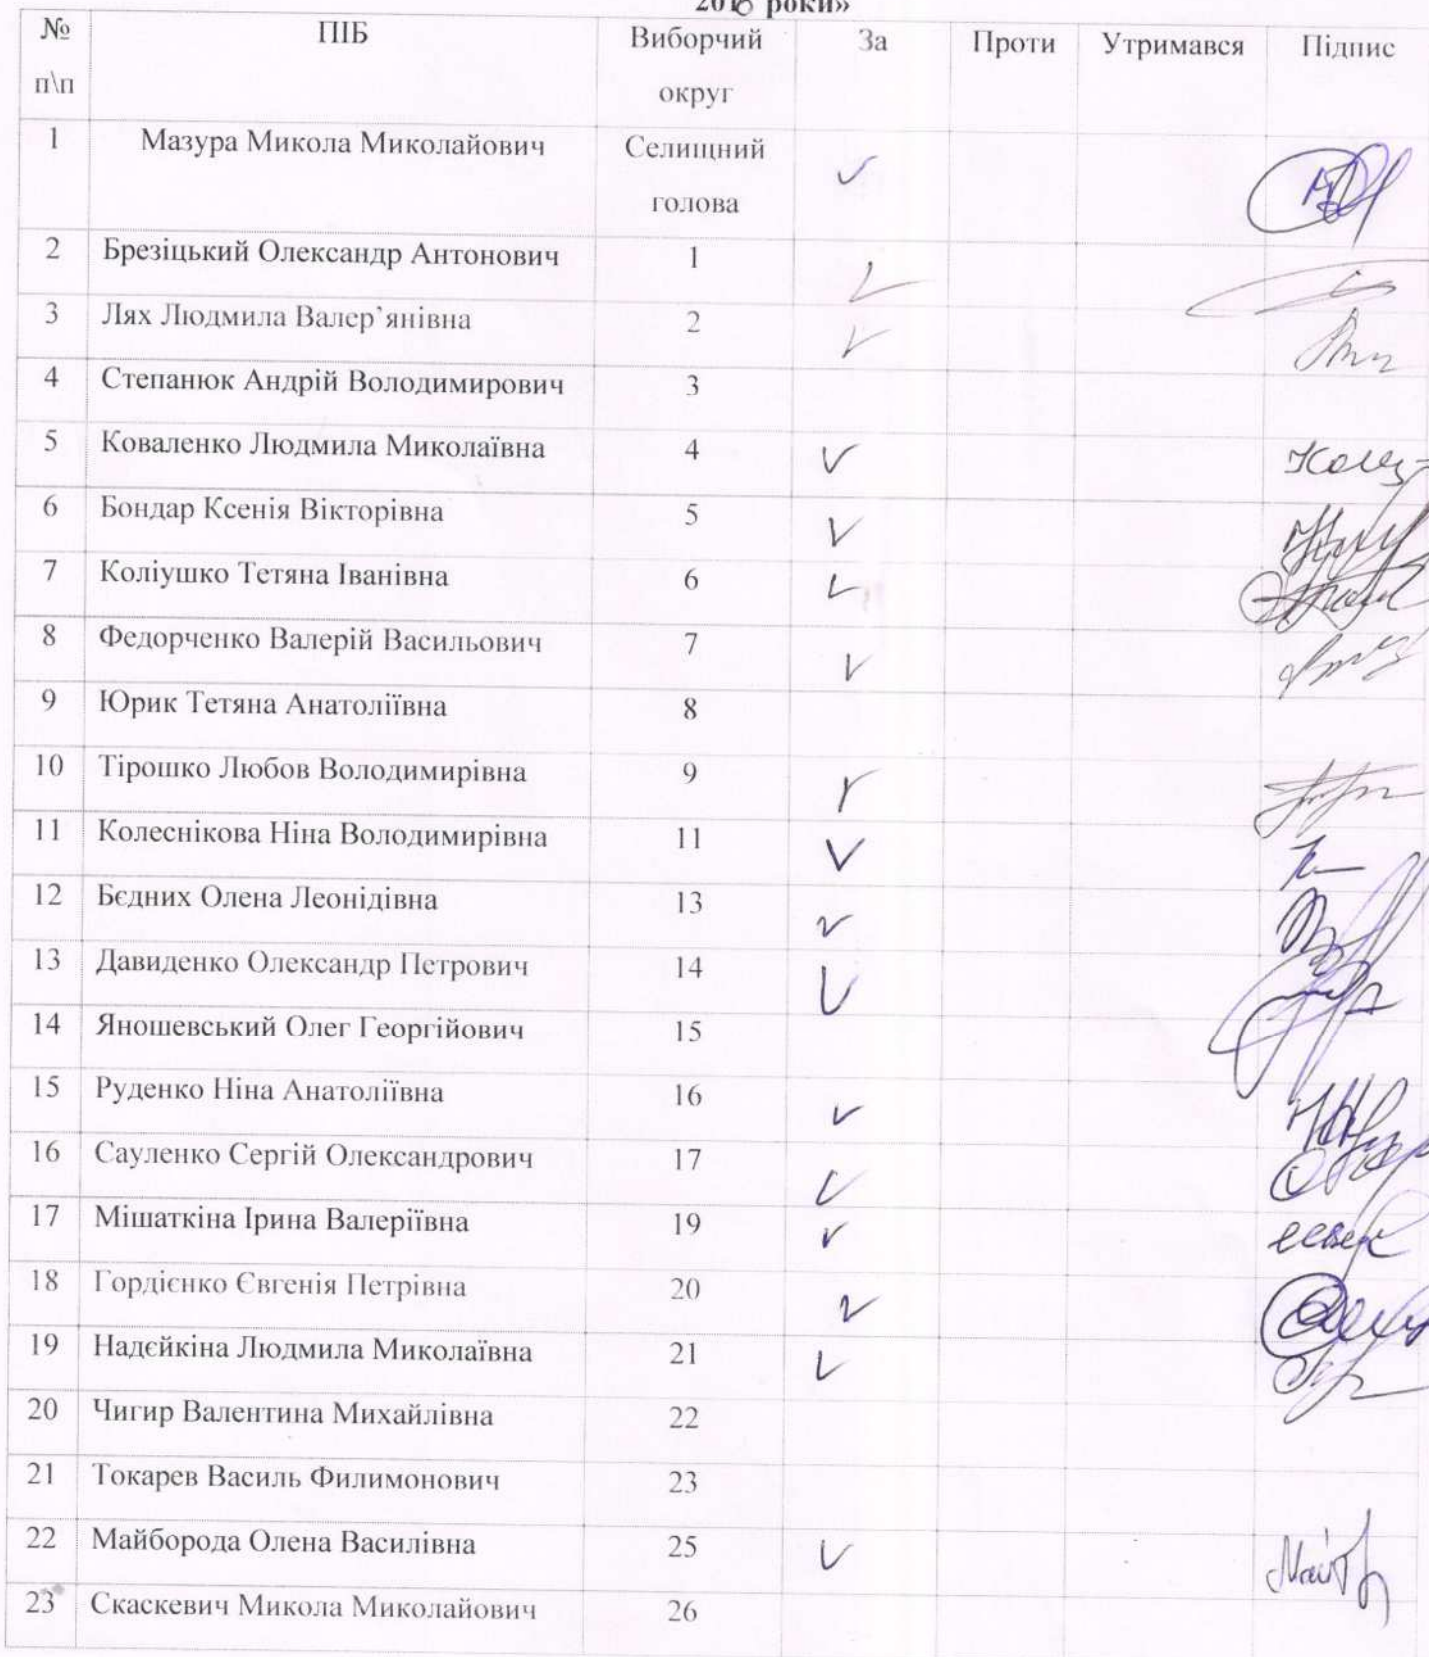 роки»
№ п\п ПІБ Виборчий округ За Проти Утримався Підпис
1 Мазура Микола Миколайович Селищний голова
2 Брезіцький Олександр Антонович 1
3 Лях Людмила Валер’янівна 2
4 Степанюк Андрій Володимирович 3
5 Коваленко Людмила Миколаївна 4
6 Бондар Ксенія Вікторівна 5
7 Коліушко Тетяна Іванівна 6
8 Федорченко Валерій Васильович 7
9 Юрик Тетяна Анатоліївна 8
10 Тірошко Любов Володимирівна 9
11 Колеснікова Ніна Володимирівна 11
12 Бєдних Олена Леонідівна 13
13 Давиденко Олександр Петрович 14
14 Яношевський Олег Георгійович 15
15 Руденко Ніна Анатоліївна 16
16 Сауленко Сергій Олександрович 17
17 Мішаткіна Ірина Валеріївна 19
18 Гордієнко Євгенія Петрівна 20
19 Надєйкіна Людмила Миколаївна 21
20 Чигир Валентина Михайлівна 22
21 Токарев Василь Филимонович 23
22 Майборода Олена Василівна 25
23 Скаскевич Микола Миколайович 26